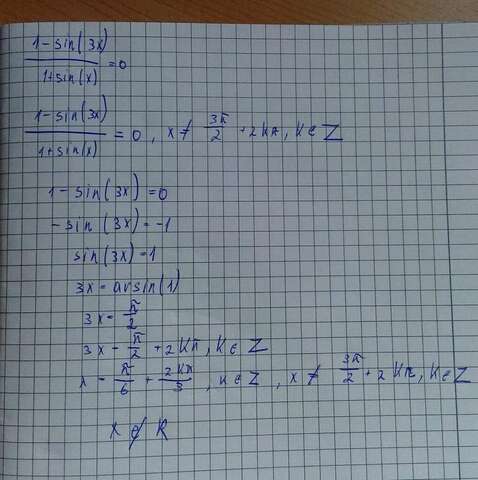 1-sin(3x)
1+sin(x) =0
1-sin(3x)
1+sin(x) = 0, x≠ 3π/2 +2kπ, k∈Z
1-sin(3x)=0
-sin(3x)=-1
sin(3x)=1
3x=arsin(1)
3x=π/2
3x=π/2+2kπ, k∈Z
x=π/6+2kπ/3, k∈Z, x≠ 3π/2+2kπ, k∈Z
x∉R